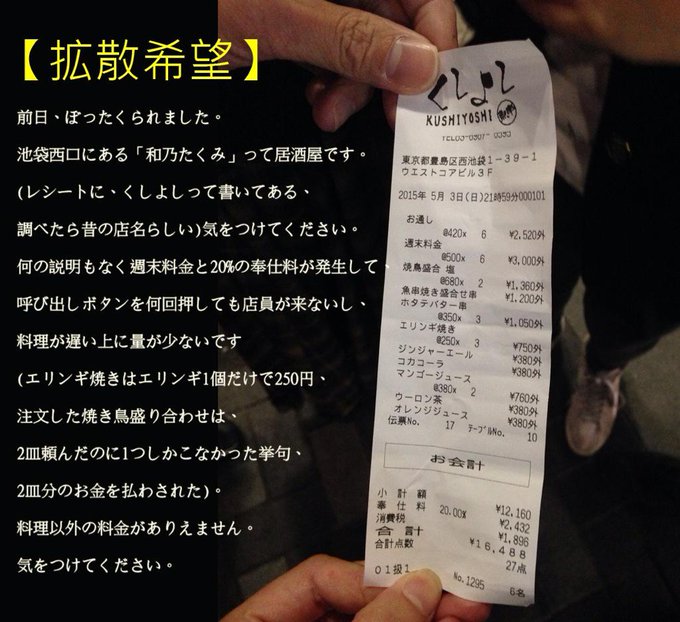 【拡散希望】
前日、ぼったくられました。
池袋西口にある「和乃たくみ」って居酒屋です。
(レシートに、くしよしって書いてある、
調べたら昔の店名らしい)気をつけてください。
何の説明もなく週末料金と20%の奉仕料が発生して、
呼び出しボタンを何回押しても店員が来ないし、
料理が遅い上に量が少ないです
(エリンギ焼きはエリンギ1個だけで250円、
注文した焼き鳥盛り合わせは、
2皿頼んだのに1つしかこなかった挙句、
2皿分のお金を払わされた)。
料理以外の料金がありえません。
気をつけてください。
くしよし
KUSHIYOSHI
東京都豊島区西池袋1-39-1
ウエストコアビル3F
2015年 5月 3日(日)21時59分000101
お通し
@420x 6 ¥2,520外
週末料金
@500x 6 ¥3,000外
焼鳥盛合 塩
@680x 2 ¥1,360外
魚串焼き盛合せ串 ¥1,200外
ホタテバター串
@350x 3 ¥1,050外
エリンギ焼き
@250x 3 ¥750外
ジンジャーエール ¥380外
コカコーラ ¥380外
マンゴージュース
@380x 2 ¥760外
ウーロン茶 ¥380外
オレンジジュース ¥380外
伝票No. 17 テーブルNo. 10
お会計
小計額 ¥12,160
奉仕料 20.00% ¥2,432
消費税 ¥1,896
合計 ¥16,488
合計点数 27点
01扱1 No.1295 6名